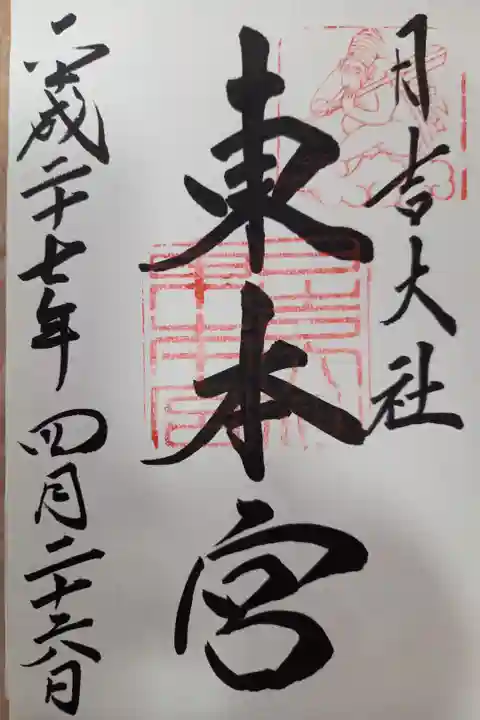 日吉大社
東本宮
平成二十七年四月二十六日